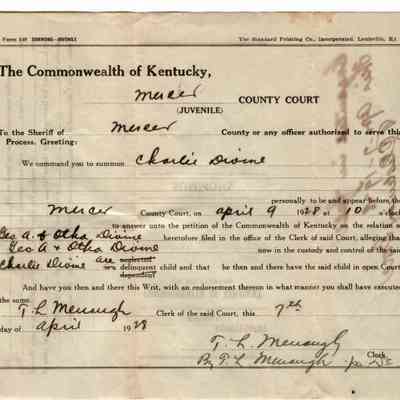 Form 149 SUMMONS—JUVENILE The Standard Printing Co., Incorporated, Louisville, Ky
The Commonwealth of Kentucky,
Mercer COUNTY COURT
(JUVENILE)
To the Sheriff of Mercer County or any officer authorized to serve this
Process, Greeting:
We command you to summon Charlie Divine
personally to be and appear before the
Mercer County Court, on April 9 1928 at 10 o'clock
to answer unto the petition of the Commonwealth of Kentucky on the relation of
Geo A. & Otha Divine heretofore filed in the office of the Clerk of said Court, alleging that
Geo A & Otha Divine now in the custody and control of the said
Charlie Divine are neglected
delinquent child and that he then and there have the said child in open Court
dependent
And have you then and there this Writ, with an endorsement thereon in what manner you shall have executed
the same.
T. L. Menaugh Clerk of the said Court, this 7th
day of April 1928
T. L. Menaugh Clerk
By T. L. Menaugh